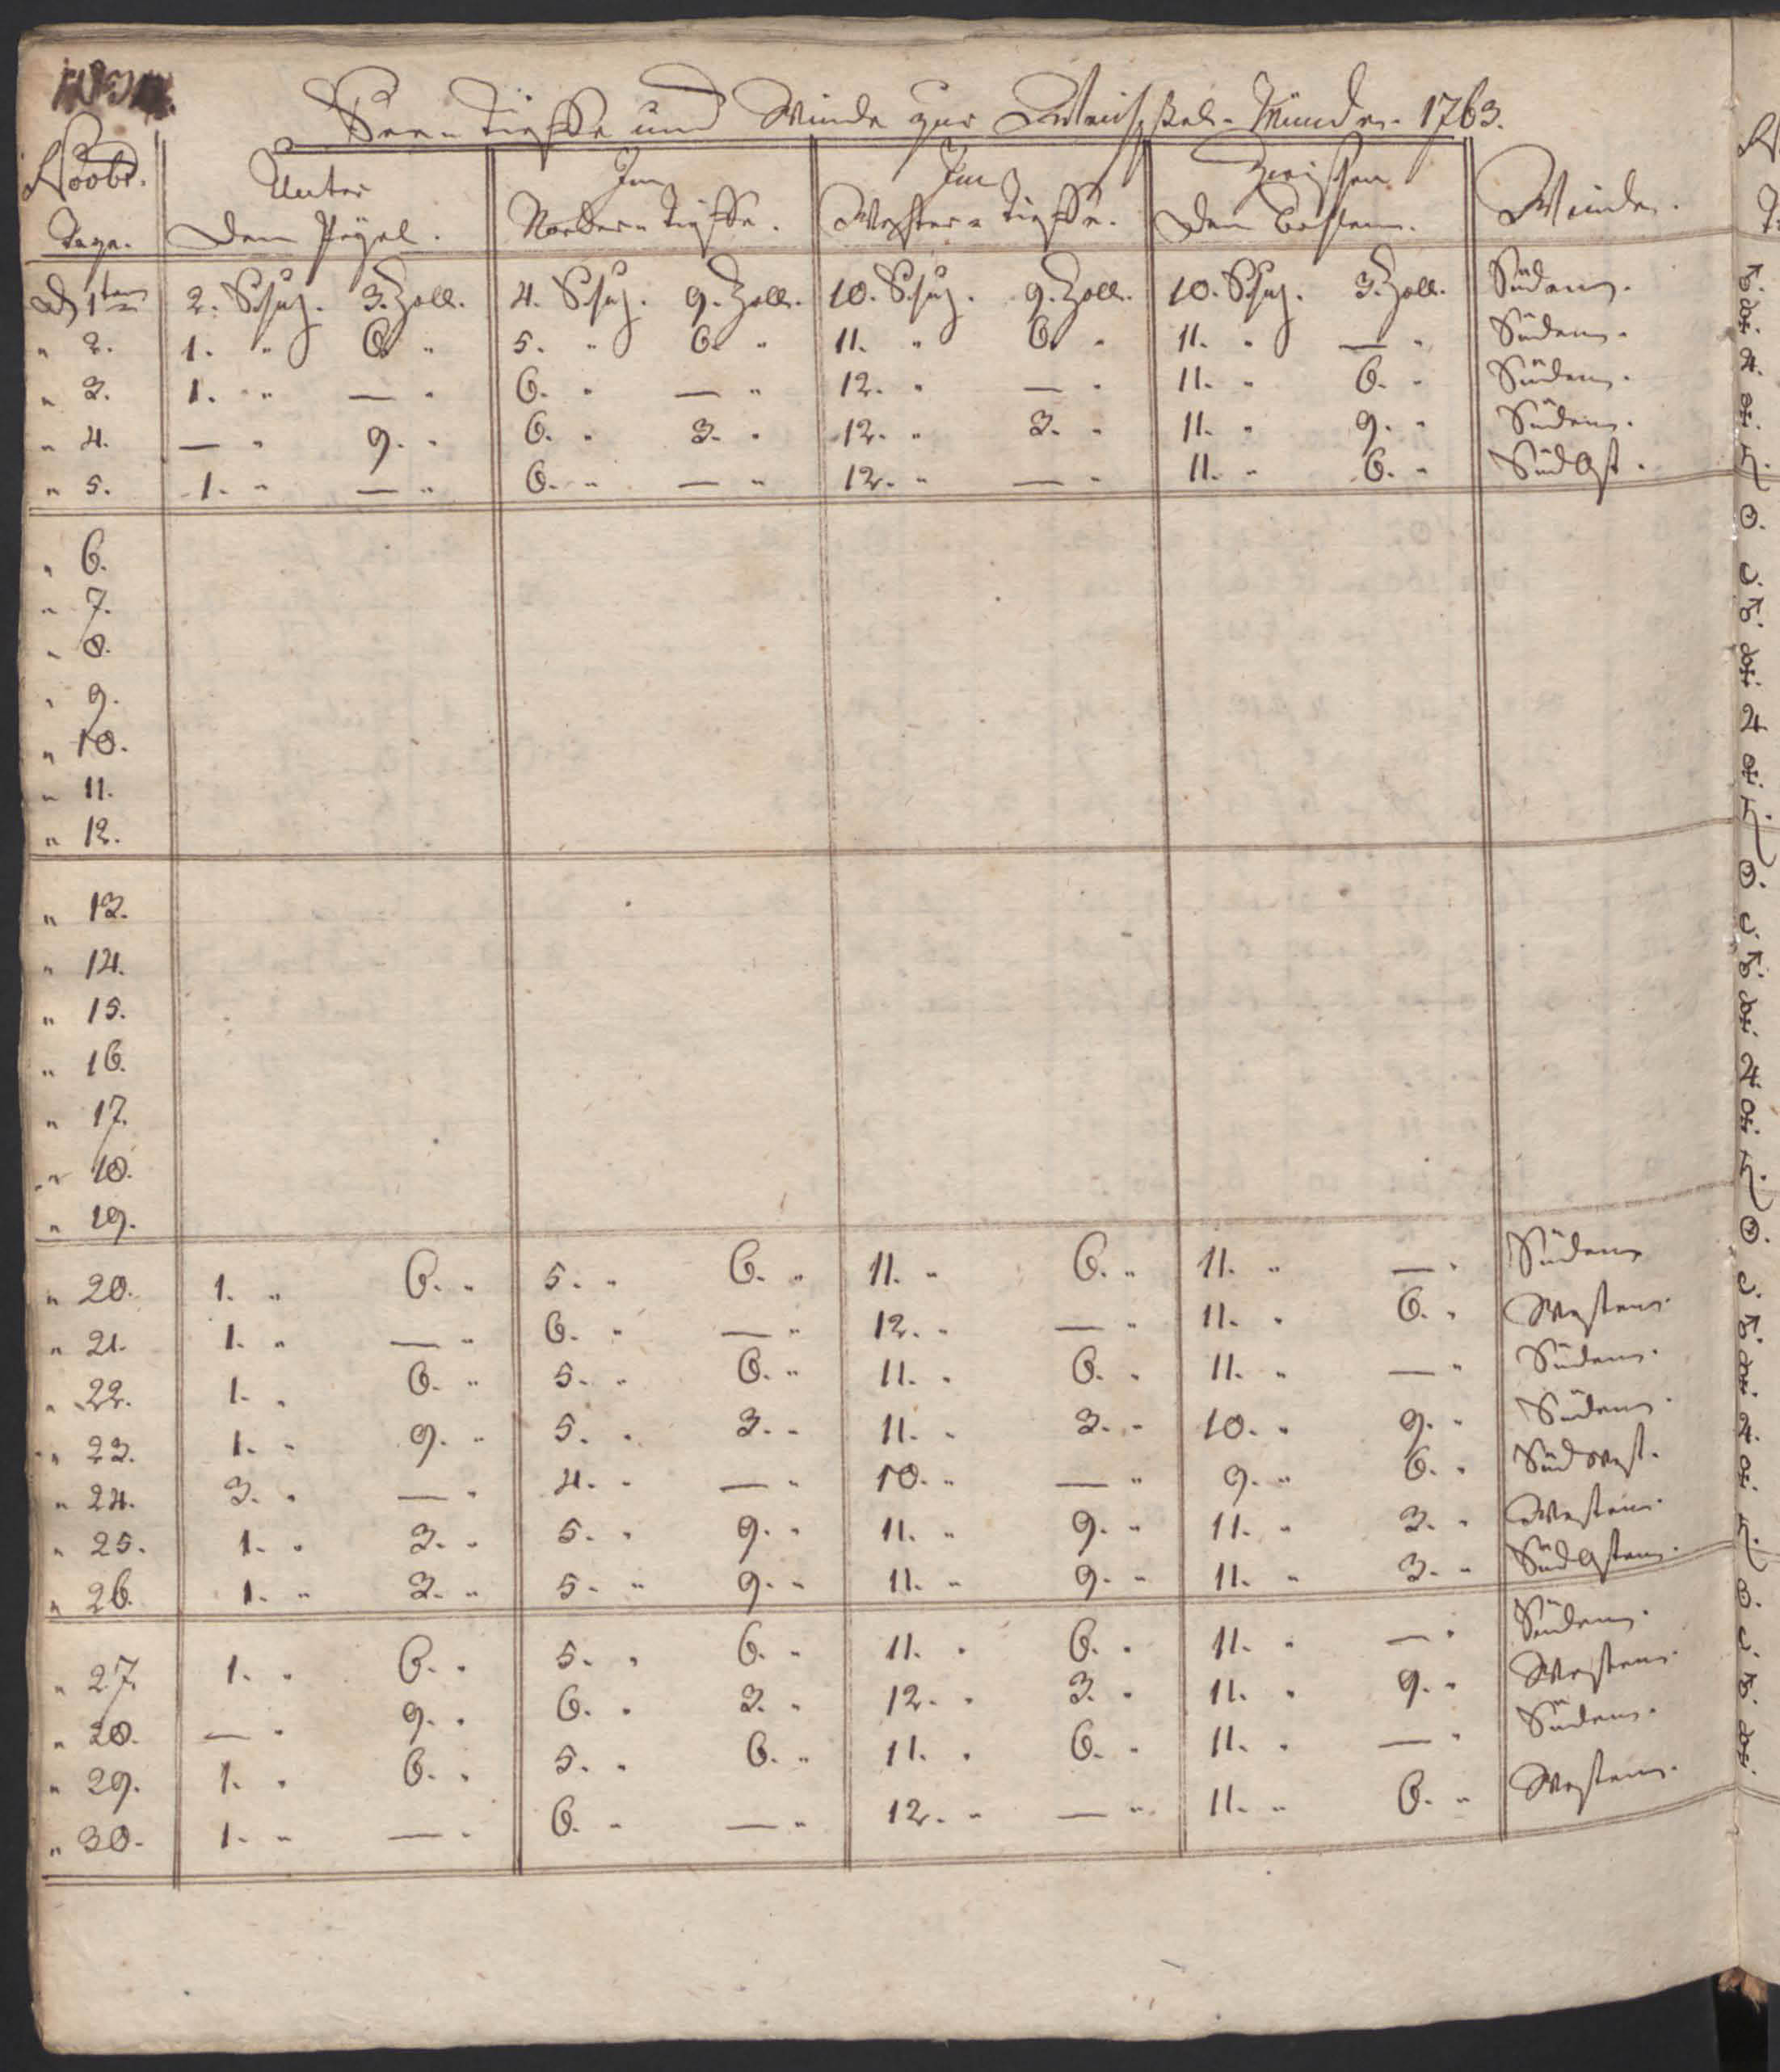 See-Tieffe und Winde zur Swienschen Münde. 1763.
Novbr. Tage. | Unter Dem Pegel. | Im Norder-Tieffe. | Im Wester-Tieffe. | Zwischen Den | Winde.
D 1ten 2. Schuh. 3. Zoll. 4. Schuh. 9. Zoll. 10. Schuh. 9. Zoll. 10. Schuh. 3. Zoll. Süden.
" 2. 1. " 6. " 5. " 6. " 11. " 6. " 11. " — " Süden.
" 3. 1. " — " 6. " — " 12. " — " 11. " 6. " Süden.
" 4. — " 9. " 6. " 3. " 12. " 3. " 11. " 9. " Süden.
" 5. 1. " — " 6. " — " 12. " — " 11. " 6. " SüdOst.
" 6.
" 7.
" 8.
" 9.
" 10.
" 11.
" 12.
" 13.
" 14.
" 15.
" 16.
" 17.
" 18.
" 19.
" 20. 1. " 6. " 5. " 6. " 11. " 6. " 11. " — " Süden
" 21. 1. " — " 6. " — " 12. " — " 11. " 6. " Westen.
" 22. 1. " 6. " 5. " 6. " 11. " 6. " 11. " — " Süden.
" 23. 1. " 9. " 5. " 3. " 11. " 3. " 10. " 9. " Süden.
" 24. 3. " — " 4. " — " 10. " — " 9. " 6. " Südwest.
" 25. 1. " 3. " 5. " 9. " 11. " 9. " 11. " 3. " Westen.
" 26. 1. " 3. " 5. " 9. " 11. " 9. " 11. " 3. " SüdOsten.
" 27. 1. " 6. " 5. " 6. " 11. " 6. " 11. " — " Süden.
" 28. — " 9. " 6. " 3. " 12. " 3. " 11. " 9. " Westen.
" 29. 1. " 6. " 5. " 6. " 11. " 6. " 11. " — " Süden.
" 30. 1. " — " 6. " — " 12. " — " 11. " 6. " Westen.